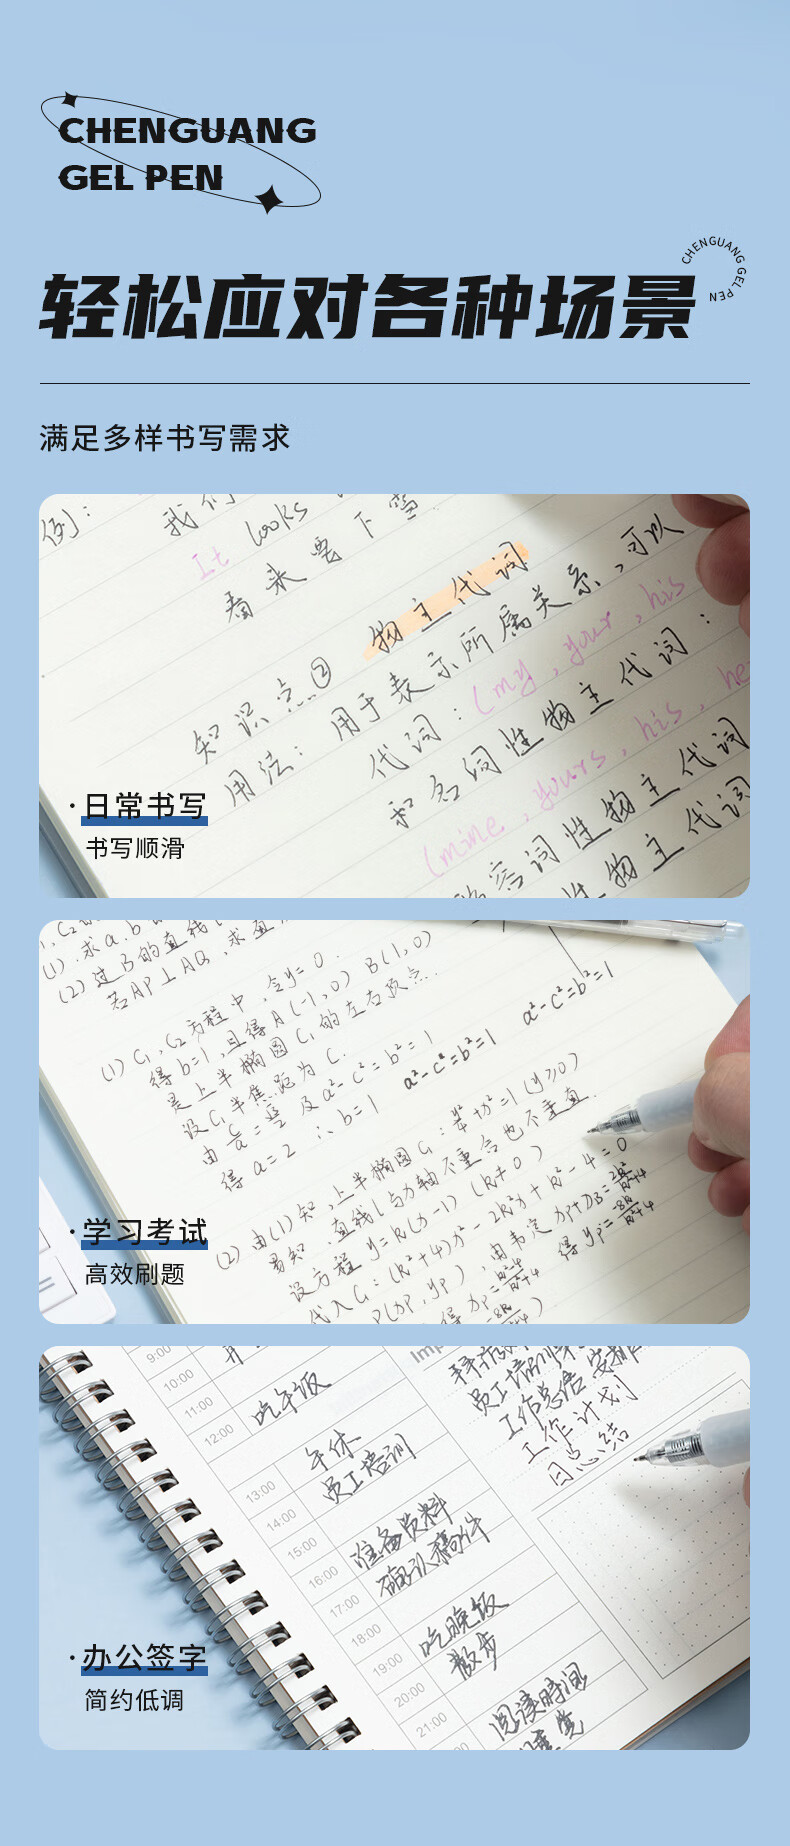 CHENGUANG
GEL PEN
CHENGUANG GEL PEN
轻松应对各种场景
满足多样书写需求
例: 我们
It looks
看来要下雪
知识点② 物主代词
用法: 用于表示所属关系,可以
代词: (my, your, his
和名词性物主代词:
(mine, yours, his, he
容词性物主代词
性物主代词
·日常书写
书写顺滑
(1).求a.b
(2)过B的直线
若AP⊥AQ,求直
(1) C₁,C₂方程中,令y=0.
得b=1,且得A(-1,0) B(1,0)
是上半椭圆C₁的左右顶点.
设C₁半焦距为C.
由 及a²-c²=b²=1 a²-c²=b²=1 a²-c²=b²=1
得a=2 ∴b=1
(2)由(1)知,上半椭圆C₁: +x²=1(y≥0)
易知,直线l与x轴不重合也不垂直.
设方程y=k(x-1)(k≠0)
代入C₁:(k²+4)x²-2k²x+k²-4=0
P(xp,yp),由韦定xp+xB=2k²/k²+4
得xp=k²-4/k²+4 得yp=-8k/k²+4
·学习考试
高效刷题
9:00
10:00
11:00
12:00 吃午饭
13:00 午休
14:00 员工培训
15:00
16:00 准备资料
17:00 确认稿件
18:00
19:00 吃晚饭
20:00 散步
21:00
阅读时间
Imp
员工培训
工作总结 安排
工作计划
日总结
·办公签字
简约低调